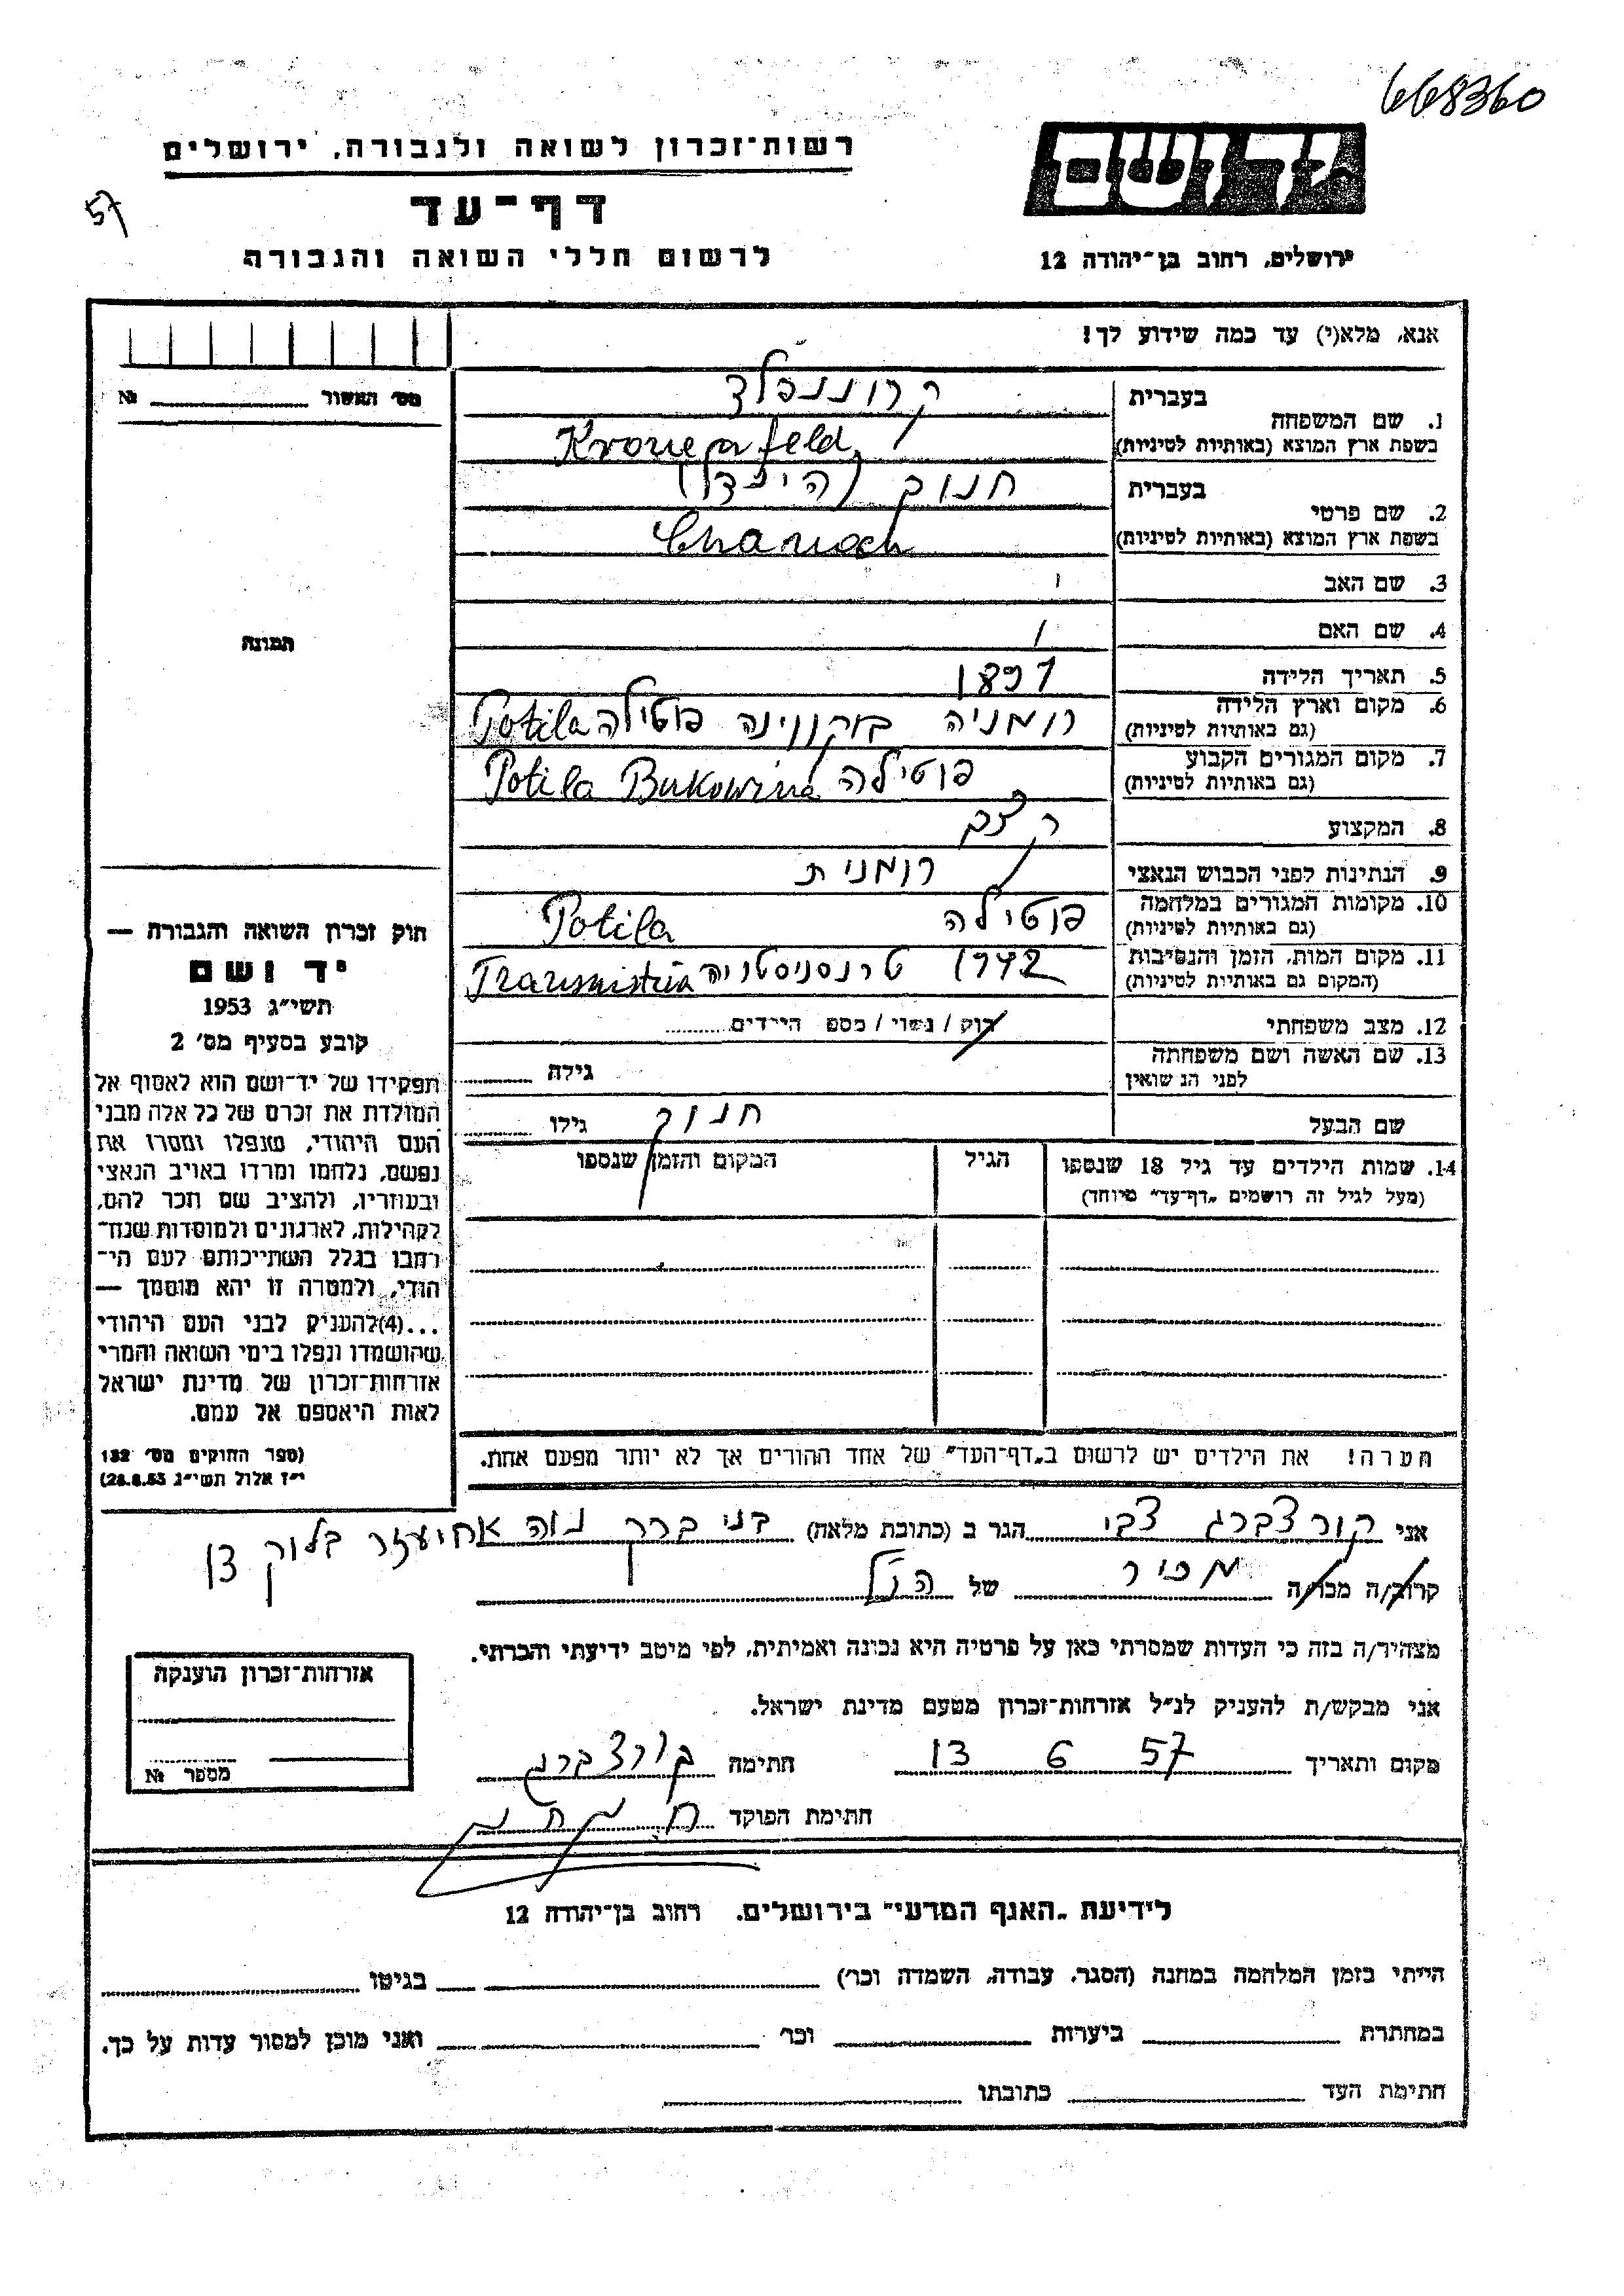 668360
רשות־זכרון לשואה ולגבורה, ירושלים
יד ושם
57
דף־עד
לרשום חללי השואה והגבורה
ירושלים, רחוב בן־יהודה 12
אנא, מלא(י) עד כמה שידוע לך!
מס׳ האשור № 
1. שם המשפחה
בעברית קרוננפלד
בשפת ארץ המוצא (באותיות לטיניות) Kronenfeld
2. שם פרטי
בעברית חנוך (הינדל)
בשפת ארץ המוצא (באותיות לטיניות) Chanoch
3. שם האב
4. שם האם
תמונה
5. תאריך הלידה
6. מקום וארץ הלידה רומניה בוקווינה פוטילה Potila
(גם באותיות לטיניות)
7. מקום המגורים הקבוע פוטילה Potila Bukowina
(גם באותיות לטיניות)
8. המקצוע קצב
9. הנתינות לפני הכבוש הנאצי רומנית
10. מקומות המגורים במלחמה פוטילה Potila
(גם באותיות לטיניות)
11. מקום המות, הזמן והנסיבות 1942 טרנסניסטריה Transnistria
(המקום גם באותיות לטיניות)
12. מצב משפחתי רוק / נשוי / מספ הילדים
13. שם האשה ושם משפחתה גילה
לפני הנשואין
שם הבעל חנוך גילו
14. שמות הילדים עד גיל 18 שנספו הגיל המקום והזמן שנספו
(מעל לגיל זה רושמים „דף־עד״ מיוחד)
הערה! את הילדים יש לרשום ב„דף־העד״ של אחד ההורים אך לא יותר מפעם אחת.
חוק זכרון השואה והגבורה —
יד ושם
תשי״ג 1953
קובע בסעיף מס׳ 2
תפקידו של יד־ושם הוא לאסוף אל
המולדת את זכרם של כל אלה מבני
העם היהודי, שנפלו ומסרו את
נפשם, נלחמו ומרדו באויב הנאצי
ובעוזריו, ולהציב שם וזכר להם,
לקהילות, לארגונים ולמוסדות שנח־
רבו בגלל השתייכותם לעם הי־
הודי, ולמטרה זו יהא מוסמך —
...(4)להעניק לבני העם היהודי
שהושמדו ונפלו בימי השואה והמרי
אזרחות־זכרון של מדינת ישראל
לאות היאספם אל עמם.
(ספר החוקים מס׳ 132
י״ז אלול תשי״ג 28.8.53)
אני קורצברג צבי הגר ב (כתובת מלאה) בני ברק נוה אחיעזר בלוק
קרוב/ה מכר/ה מכיר של הנ״ל
מצהיר/ה בזה כי העדות שמסרתי כאן על פרטיה היא נכונה ואמיתית, לפי מיטב ידיעתי והכרתי.
אני מבקש/ת להעניק לנ״ל אזרחות־זכרון מטעם מדינת ישראל.
מקום ותאריך 13 6 57 חתימה קורצברג
חתימת הפוקד
אזרחות־זכרון הוענקה
מספר №
לידיעת „האגף המדעי״ בירושלים, רחוב בן־יהודה 12
הייתי בזמן המלחמה במחנה (הסגר, עבודה, השמדה וכר׳) בגיטו
במחתרת ביערות וכר׳ ואני מוכן למסור עדות על כך.
חתימת העד כתובתו